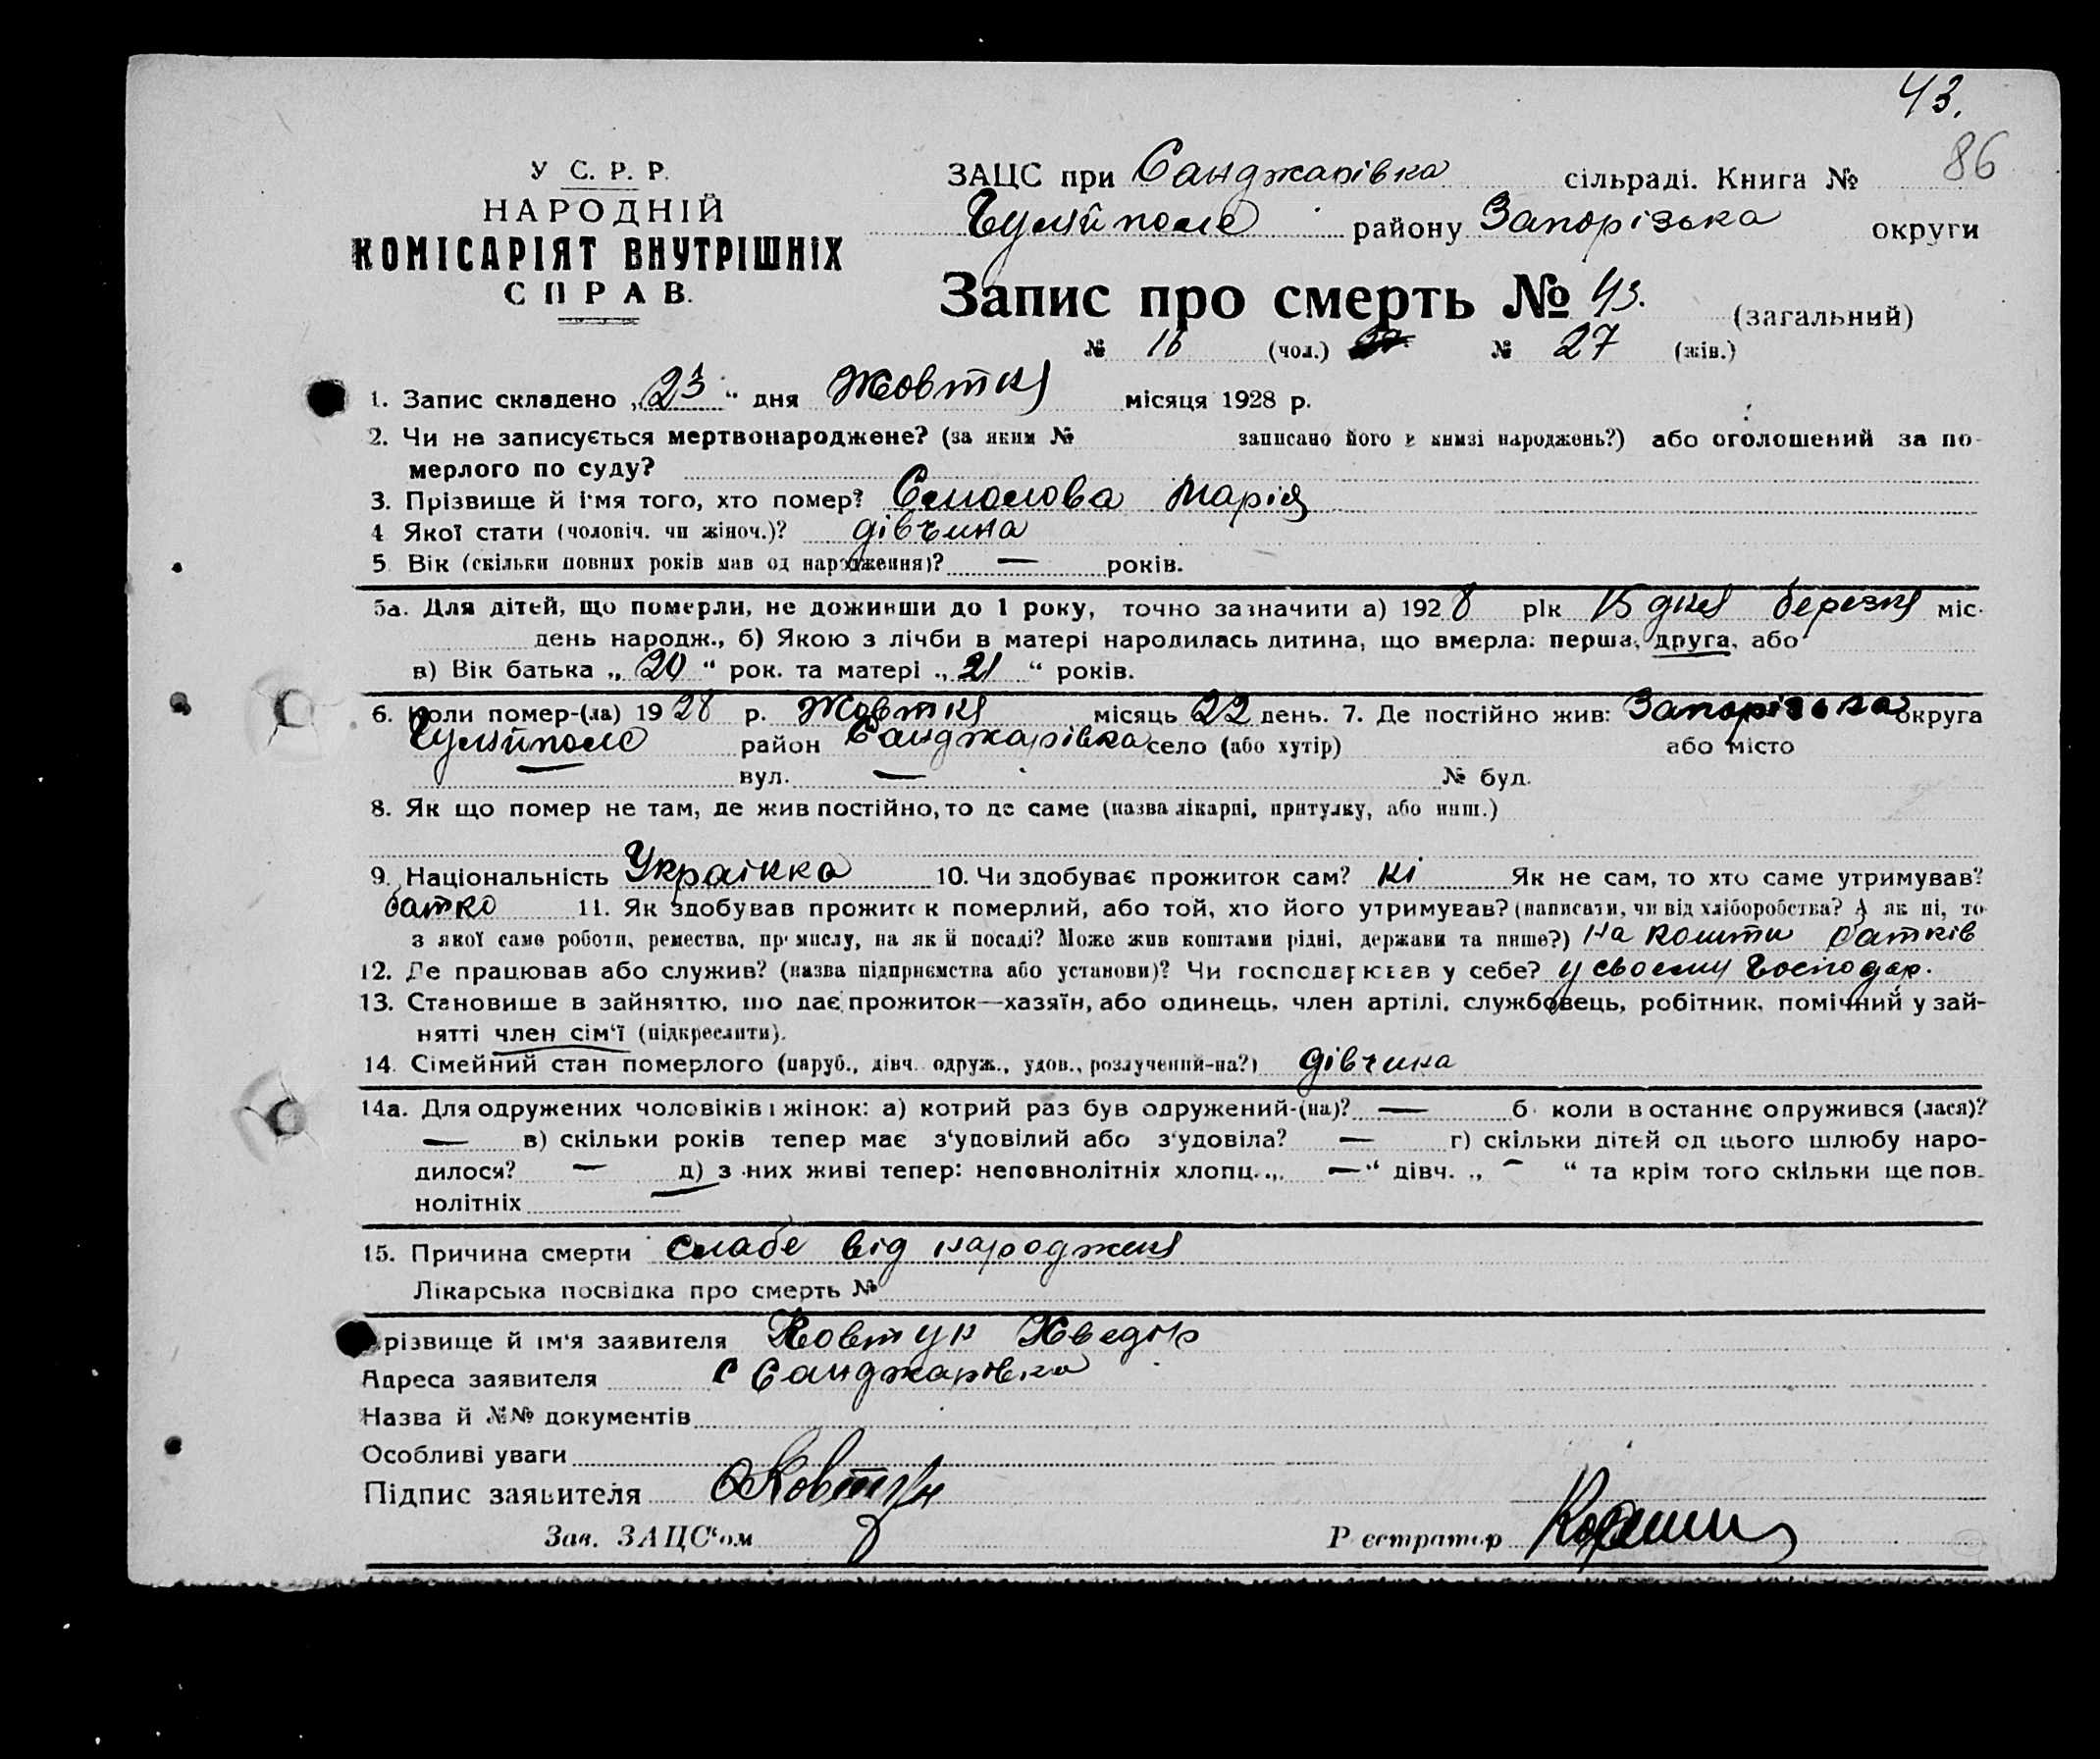 43.
86
У С. Р. Р.
НАРОДНІЙ
КОМІСАРІЯТ ВНУТРІШНІХ
СПРАВ.
ЗАЦС при Санджарівка сільраді. Книга №
Гуляйполе району Запорізька округи
Запис про смерть № 43. (загальний)
№ 16 (чол.) № 27 (жін.)
1. Запис складено „23“ дня Жовтня місяця 1928 р.
2. Чи не записується мертвонароджене? (за яким № записано його в книзі народжень?) або оголошений за по-
мерлого по суду?
3. Прізвище й ім'я того, хто помер? Марія
4 Якої стати (чоловіч. чи жіноч.)? дівчина
5. Вік (скільки повних років мав од народження)? — років.
5а. Для дітей, що померли, не доживши до 1 року, точно зазначити а) 1928 рік 15 дня березня міс.
день народж., б) Якою з лічби в матері народилась дитина, що вмерла: перша, друга, або
в) Вік батька „20“ рок. та матері „21“ років.
6. Коли помер-(ла) 1928 р. Жовтня місяць 22 день. 7. Де постійно жив: Запорізька округа
Гуляйполе район Санджарівка село (або хутір) або місто
— вул. — № буд.
8. Як що помер не там, де жив постійно, то де саме (назва лікарні, притулку, або инш.)
9. Національність Українка 10. Чи здобуває прожиток сам? ні Як не сам, то хто саме утримував?
батко 11. Як здобував прожиток померлий, або той, хто його утримував? (написати, чи від хліборобства? А як ні, то
з якої саме роботи, ремества, промислу, на якій посаді? Може жив коштами рідні, держави та инше?) на кошти батків
12. Де працював або служив? (назва підприємства або установи)? Чи господарював у себе? у своєму господар.
13. Становище в зайняттю, що дає прожиток—хазяїн, або одинець, член артілі, службовець, робітник, помічний у зай-
нятті член сім'ї (підкреслити).
14. Сімейний стан померлого (паруб., дівч. одруж., удов., розлучений-на?) дівчина
14а. Для одружених чоловіків і жінок: а) котрий раз був одружений-(на)? — б коли в останнє одружився (лася)?
— в) скільки років тепер має з'удовілий або з'удовіла? — г) скільки дітей од цього шлюбу наро-
дилося? — д) з них живі тепер: неповнолітніх хлопц. „ — “ дівч. „ — “ та крім того скільки ще пов-
нолітніх —
15. Причина смерти слабе від народженя
Лікарська посвідка про смерть №
Прізвище й ім'я заявителя Ковтун Хведір
Адреса заявителя с Санджарівка
Назва й №№ документів
Особливі уваги
Підпис заявителя Ковтун
Зав. ЗАЦС'ом Реєстратор